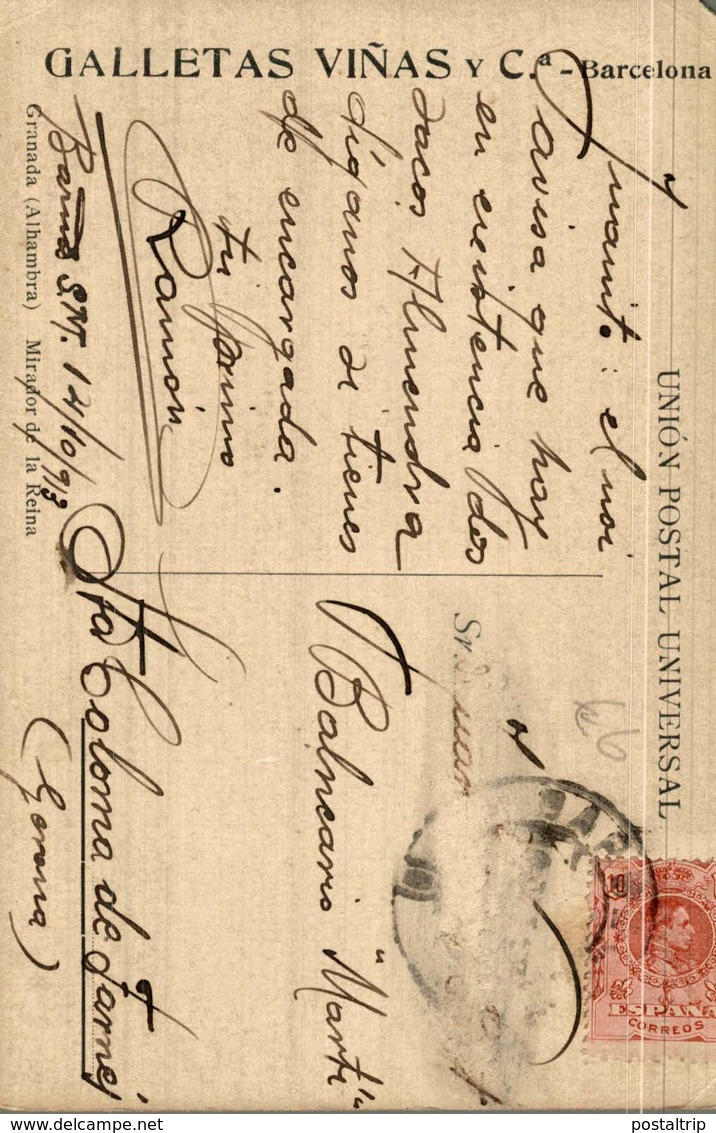 GALLETAS VIÑAS Y C.ª - Barcelona
UNIÓN POSTAL UNIVERSAL
Juanito: el noi
avisa que hay
en existencia dos
sacos Almendra
díganos si tienes
de encargada.
tu primo
Ramón
Barna S.N. 14/10/913
Granada (Alhambra) Mirador de la Reina
Sr. Juan
Balneario "Martí"
Sta Coloma de Farnés
(Gerona)
66
BAR
10
ESPAÑA
CORREOS
delcampe.net
postaltrip